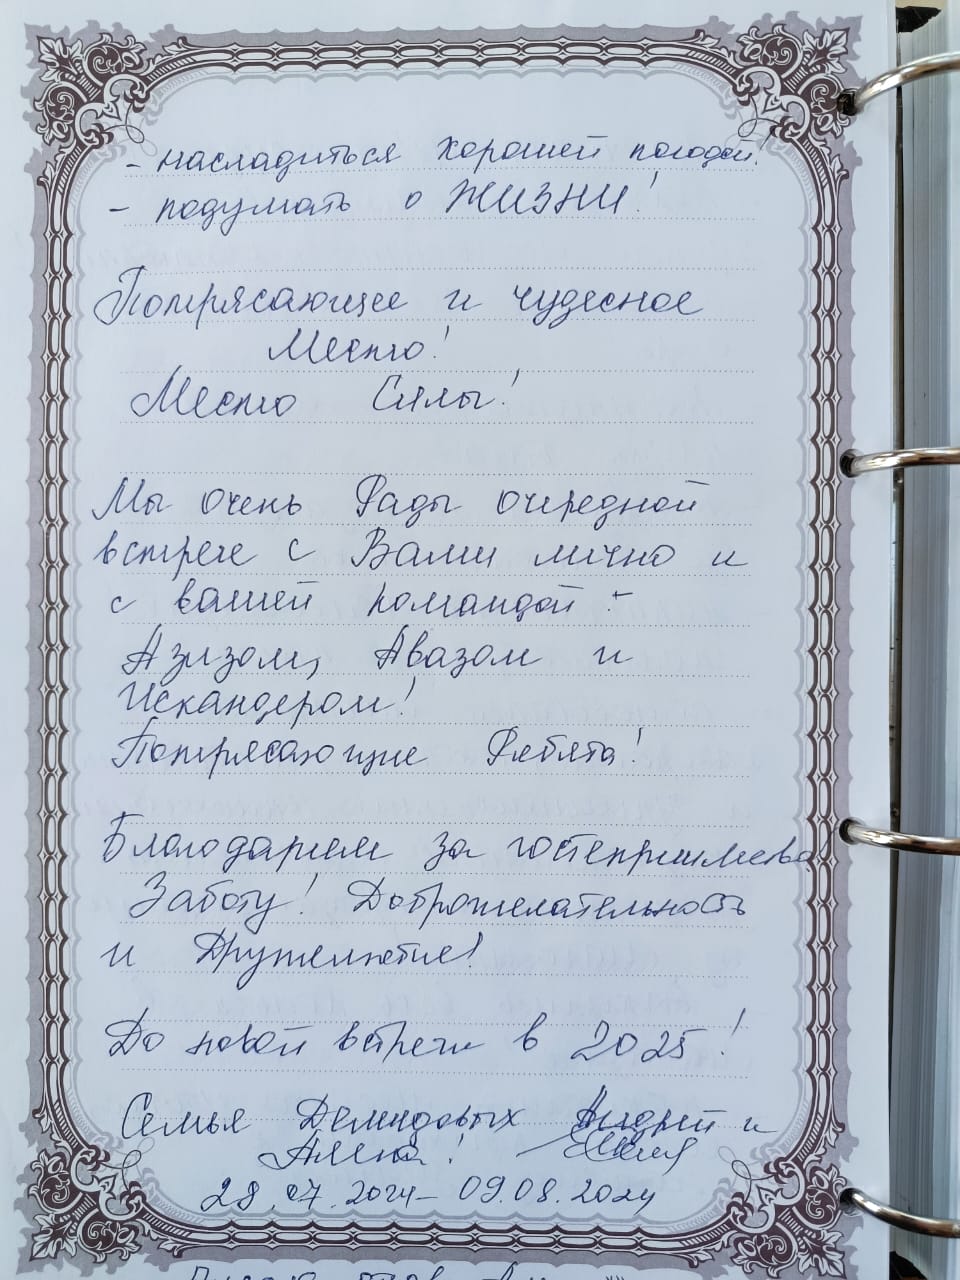 - насладиться хорошей погодой!
- подумать о ЖИЗНИ!
Потрясающее и чудесное
Место!
Место Силы!
Мы очень Рады очередной
встрече с Вами лично и
с вашей командой:-
Азизом, Авазом и
Искандером!
Потрясающие Ребята!
Благодарим за гостеприимство
Заботу! Доброжелательность
и Дружелюбие!
До новой встречи в 2025!
Семья Демидовых Андрей и
Алена!
28.07.2024- 09.08.2024